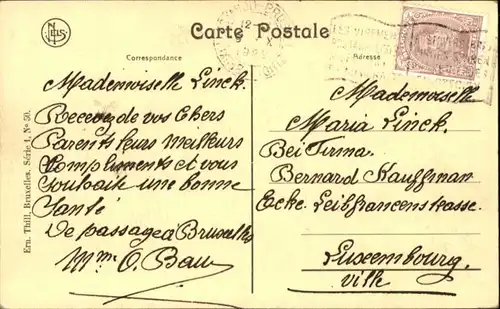 Carte Postale
NELS
Correspondance
Adresse
Ern. Thill, Bruxelles. Série 1, No 50.
Mademoiselle Linck.
Recevez de vos Chers
Parents leurs meilleurs
Compliments et vous
Souhaite une bonne
Santé
De passage à Bruxelles
Mme O. Bau
Mademoiselle
Maria Linck.
Bei Firma.
Bernard Kauffman
Ecke. Leibfrancenstrasse.
Luxembourg.
Ville